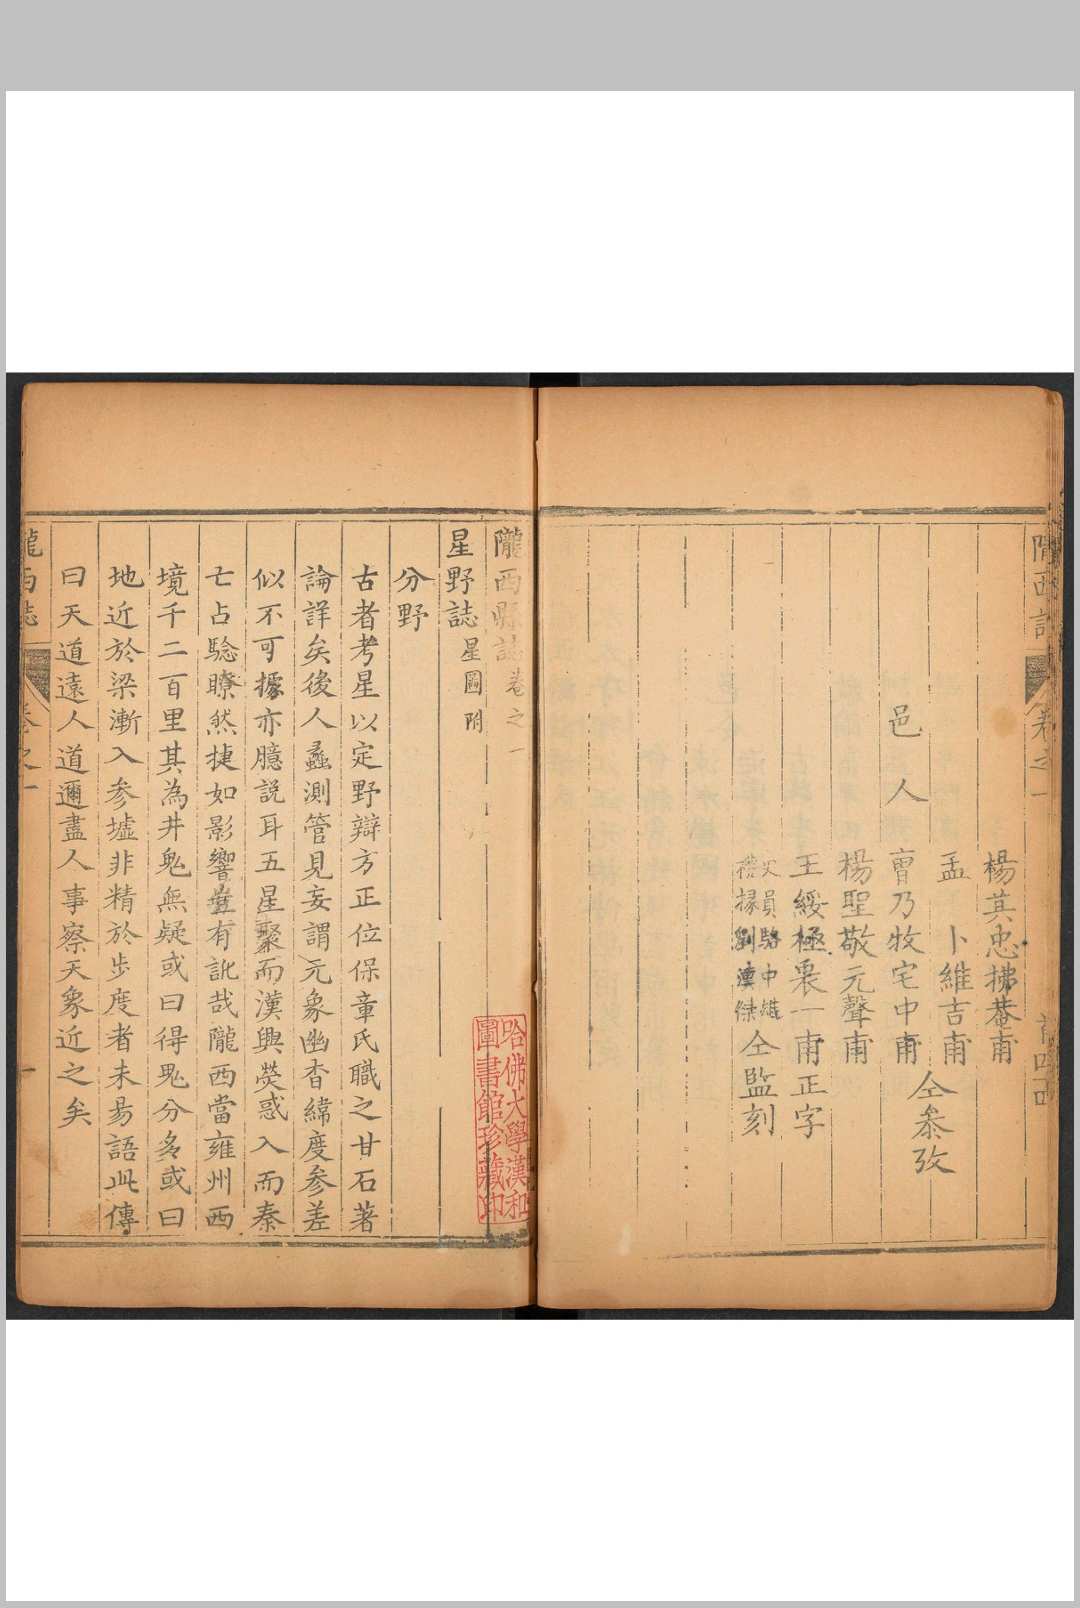 隴西誌 卷之一
楊其忠拂菴甫
孟 卜維吉甫
邑 人 曹乃牧宅中甫 仝叅攷
楊聖敬元聲甫
王綏極裘一甫正字
吏員駱中維
禮掾劉漢傑 仝監刻
隴西縣誌卷之一
星野誌星圖附
分野
古者考星以定野辯方正位保章氏職之甘石著
論詳矣後人蠡測管見妄謂元象幽杳緯度參差
似不可據亦臆説耳五星聚而漢興熒惑入而秦
亡占騐瞭然捷如影響豈有訛哉隴西當雍州西
境千二百里其為井鬼無疑或曰得鬼分多或曰
地近於梁漸入参墟非精於步度者未易語此傳
曰天道遠人道邇盡人事察天象近之矣
隴西誌 卷之一 一
哈佛大學漢和
圖書館珍藏印